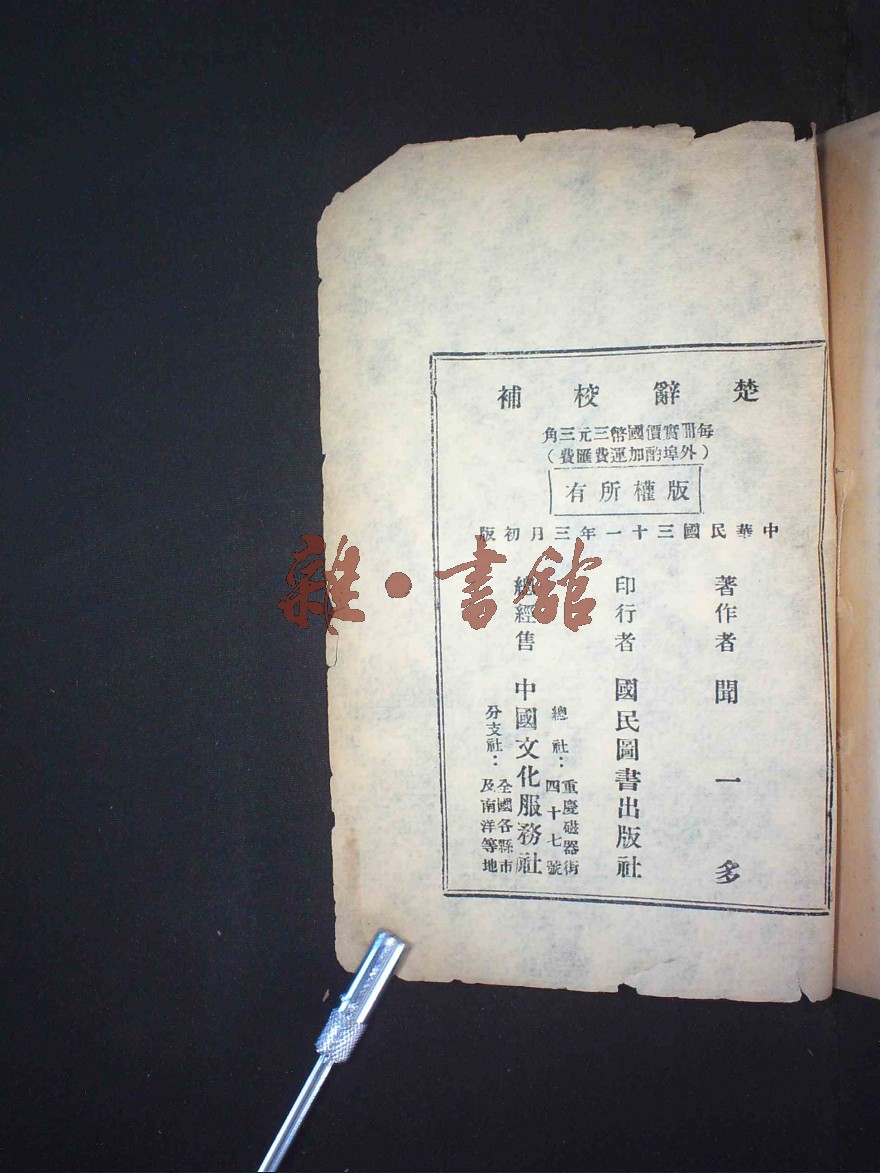 楚辭校補
每冊實價國幣三元三角
（外埠酌加運費匯費）
版權所有
中華民國三十一年三月初版
著作者 聞一多
印行者 國民圖書出版社
總經售 中國文化服務社
總社：重慶磁器街四十七號
分支社：全國各縣市及南洋等地
雜·書館